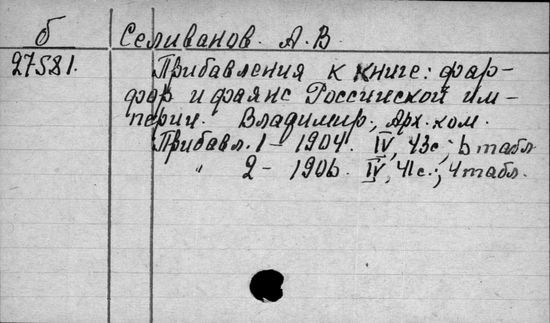 б Селиванов. А. В.
27581. Прибавления к книге: фар-
фор и фаянс Российской им-
перии. Владимир, Арх. ком.
Прибавл. 1 - 1904. IV, 43 с.; 6 табл
" 2 - 1906. IV, 41 с.; 4 табл.